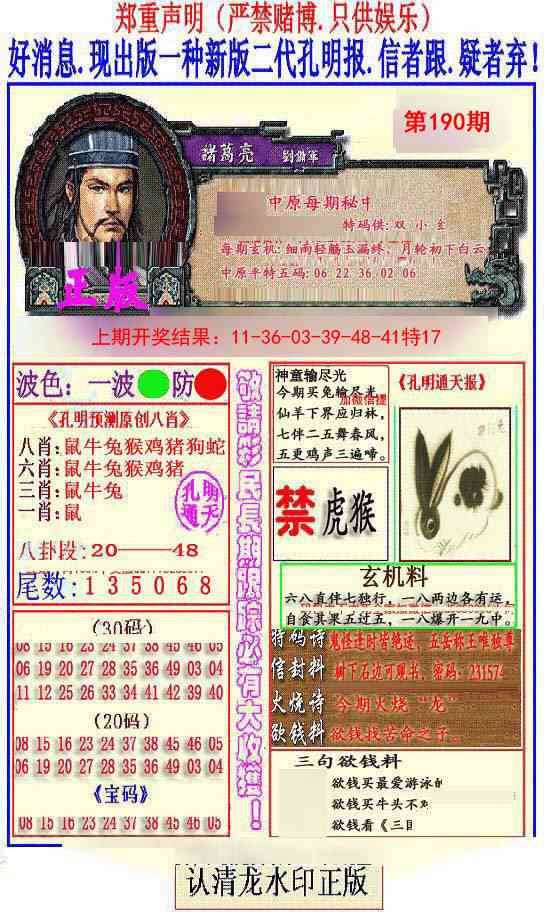 郑重声明（严禁赌博.只供娱乐）
好消息.现出版一种新版二代孔明报.信者跟.疑者弃！
第190期
諸葛亮 劉備軍
中原每期秘中
特码供:双 小
每期玄机:细雨轻觞玉漏终，月轮初下白云
中原平特五码:06 22 36 02 06
正版
上期开奖结果：11-36-03-39-48-41特17
波色：一波 防
《孔明预测原创八肖》
八肖:鼠牛兔猴鸡猪狗蛇
六肖:鼠牛兔猴鸡猪
三肖:鼠牛兔
一肖:鼠
孔明
通天
八卦段:20——48
尾数:135068
敬請彩民長期跟踪必有大收獲！
神童输尽光
今期买兔输尽光，
仙羊下界应归林，
七伴二五舞春风，
五更鸡声三遍啼。
《孔明通天报》
禁 虎猴
玄机料
六八直伴七独行，一八两边各有运，
自食其果五过五，一八爆开一九中。
(30码)
08 15 16 23 24 37 38 45 46 05
06 19 20 27 28 35 36 49 03 04
11 12 25 26 33 34 41 42 39 40
(20码)
08 15 16 23 24 37 38 45 46 05
06 19 20 27 28 35 36 49 03 04
《宝码》
08 15 16 23 24 37 38 45 46 05
特码诗 鬼怪逢时皆绝运，五岳称王唯独尊
信封料 树下石边可观书，密码：231574
火烧诗 今期火烧“龙”
欲钱料 欲钱找苦命之子。
三句欲钱料
欲钱买最爱游泳的
欲钱买牛头不
欲钱看《三国
认清龙水印正版